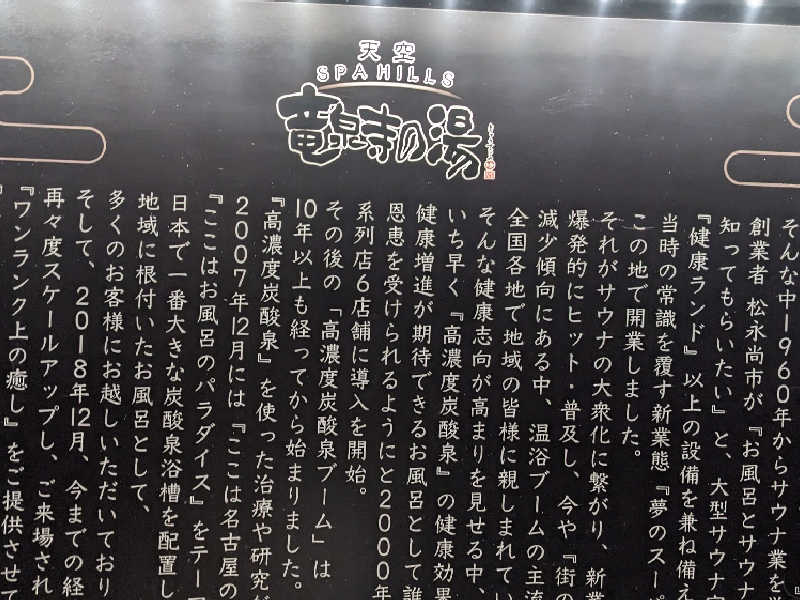 天空
SPA HILLS
竜泉寺の湯
そんな中1960年からサウナ業を
創業者 松永尚市が『お風呂とサウナ
知ってもらいたい』と、大型サウナ
『健康ランド』以上の設備を兼ね備え
当時の常識を覆す新業態『夢のスー
この地で開業しました。
それがサウナの大衆化に繋がり、新業
爆発的にヒット・普及し、今や『街の
減少傾向にある中、温浴ブームの主流
全国各地で地域の皆様に親しまれてい
そんな健康志向が高まりを見せる中、
いち早く『高濃度炭酸泉』の健康効果
健康増進が期待できるお風呂として誰
恩恵を受けられるようにと2000年
系列店6店舗に導入を開始。
その後の「高濃度炭酸泉ブーム」は
10年以上も経ってから始まりました。
『高濃度炭酸泉』を使った治療や研究が
2007年12月には『ここは名古屋の
『ここはお風呂のパラダイス』をテー
日本で一番大きな炭酸泉浴槽を配置し
地域に根付いたお風呂として、
多くのお客様にお越しいただいており
そして、2018年12月 今までの経
再々度スケールアップし、ご来場され
『ワンランク上の癒し』をご提供させて